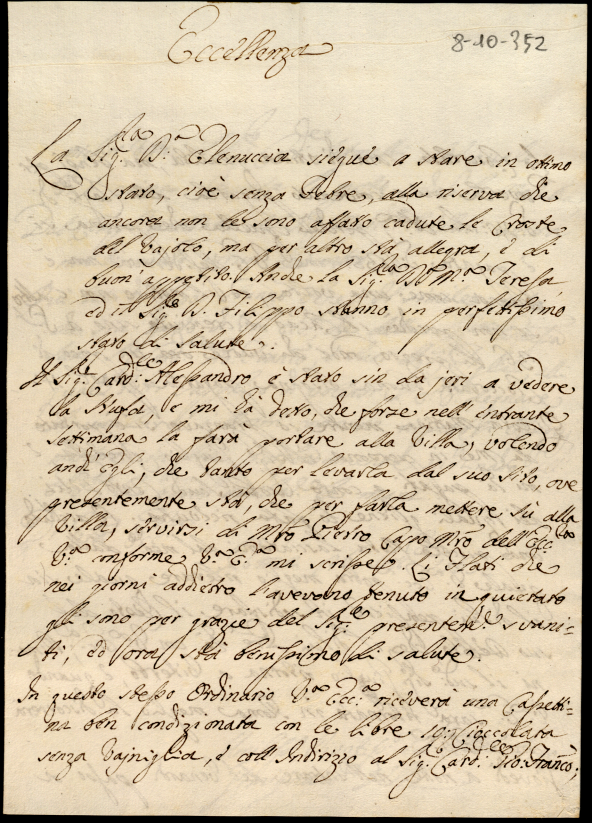 Eccellenza
8-10-352
La Sig.ra D.a Elenuccia siegue a stare in ottimo
stato, cioè senza febre, alla riserva che
ancora non le sono affato cadute le Croste
del Vajolo, ma per altro stà allegra, e di
buon'appetito. Anche la Sig.ra D.a M.a Teresa,
ed il Sig.re D. Filippo stanno in perfettissimo
stato di salute.
Il Sig.r Card.le Alessandro è stato sin da jeri a vedere
la Musa, e mi hà detto, che forze nell'entrante
settimana la farà portare alla Villa, volendo
anch'egli, che tanto per levarla dal suo sito, ove
presentemente stà, che per farla mettere sù alla
Villa, servirsi di Mro Pietro Capo Mro dell'Ecc.za
V.a conforme V.a E.a mi scrisse. Li Flati che
nei giorni addietro l'avevono tenuto inquietato
gli sono per grazie del Sig.re presentem.te svani=
ti, ed ora stà benissimo di salute.
In questo stesso Ordinario V.a Ecc.a riceverà una Cassetti=
na ben condizionata con le libre Cioccolata
senza Vainiglia, e coll'Indirizzo al Sig.r Card.le Gio: Franco;